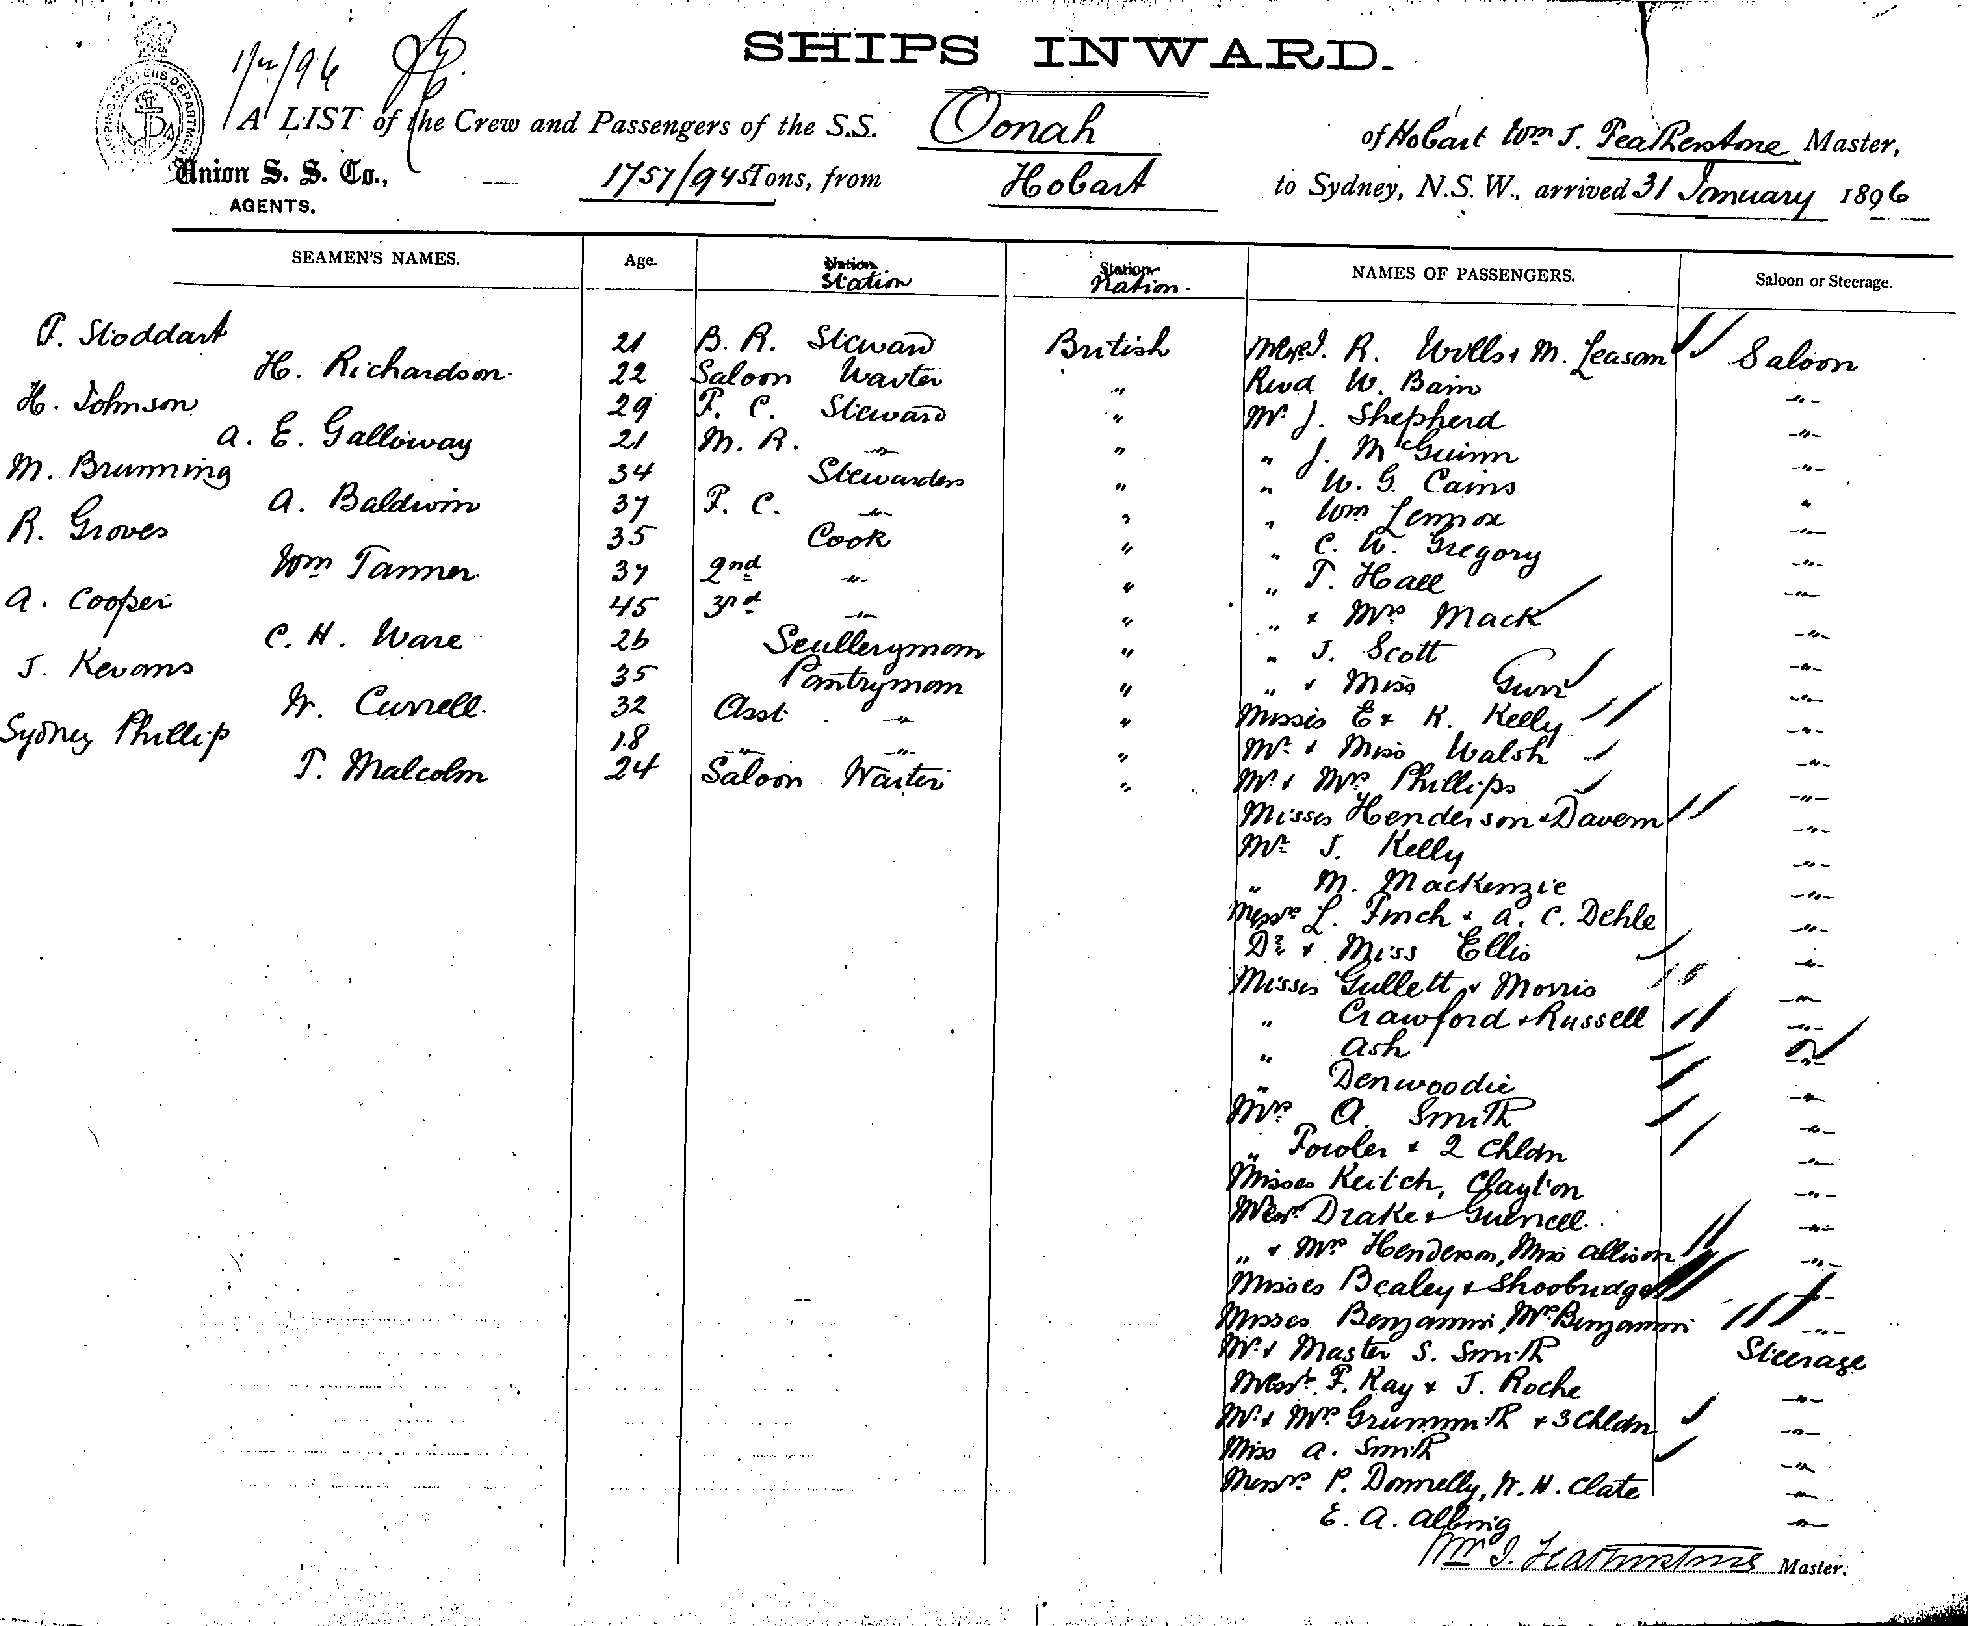 SHIPS INWARD.
A LIST of the Crew and Passengers of the S.S. Oonah of Hobart Wm J. Featherstone Master,
Union S. S. Co., AGENTS. — 1757/945 Tons, from Hobart to Sydney, N.S.W., arrived 31 January 1896
SEAMEN'S NAMES. Age. Nation Station Station Nation. NAMES OF PASSENGERS. Saloon or Steerage.
T. Stoddart 21 B. R. Steward British Messrs J. R. Wills & M. Leason Saloon
H. Richardson 22 Saloon Waiter " Revd W. Bain "
H. Johnson 29 F. C. Steward " Mr J. Shepherd "
A. E. Galloway 21 M. R. " " " J. McGuinn "
M. Brunning 34 Stewardess " " W. G. Cains "
A. Baldwin 37 F. C. " " " Wm Lennox "
R. Groves 35 Cook " " C. W. Gregory "
Wm Tanner 37 2nd " " " T. Hall "
A. Cooper 45 3rd " " " & Mrs Mack "
C. H. Ware 26 Sculleryman " " J. Scott "
J. Kevans 35 Pantryman " " & Miss Gurr "
W. Currell 32 Asst " " Misses E & K. Kelly "
Sydney Phillip 18 " " " Mr & Miss Walsh "
T. Malcolm 24 Saloon Waiter " Mr & Mrs Phillips "
Misses Henderson & Davern "
Mr J. Kelly "
" M. Mackenzie "
Messrs L. Finch & A. C. Dehle "
Dr & Miss Ellis "
Misses Gullett & Morris "
" Crawford & Russell "
" Ash "
" Denwoodie "
Mrs A. Smith "
" Fowler & 2 Chldn "
Misses Keitch, Clayton "
Messrs Drake & "
" & Mrs Henderson, Miss Allison "
Misses Bealey & Shoobridge "
Misses Benjamin, Mrs Benjamin "
Mr & Master S. Smith Steerage
Messrs F. Kay & J. Roche "
Mr & Mrs Grummitt & 3 Chldn "
Miss A. Smith "
Messrs P. Donnelly, W. H. Clate "
E. A. "
Wm J. Featherstone Master.